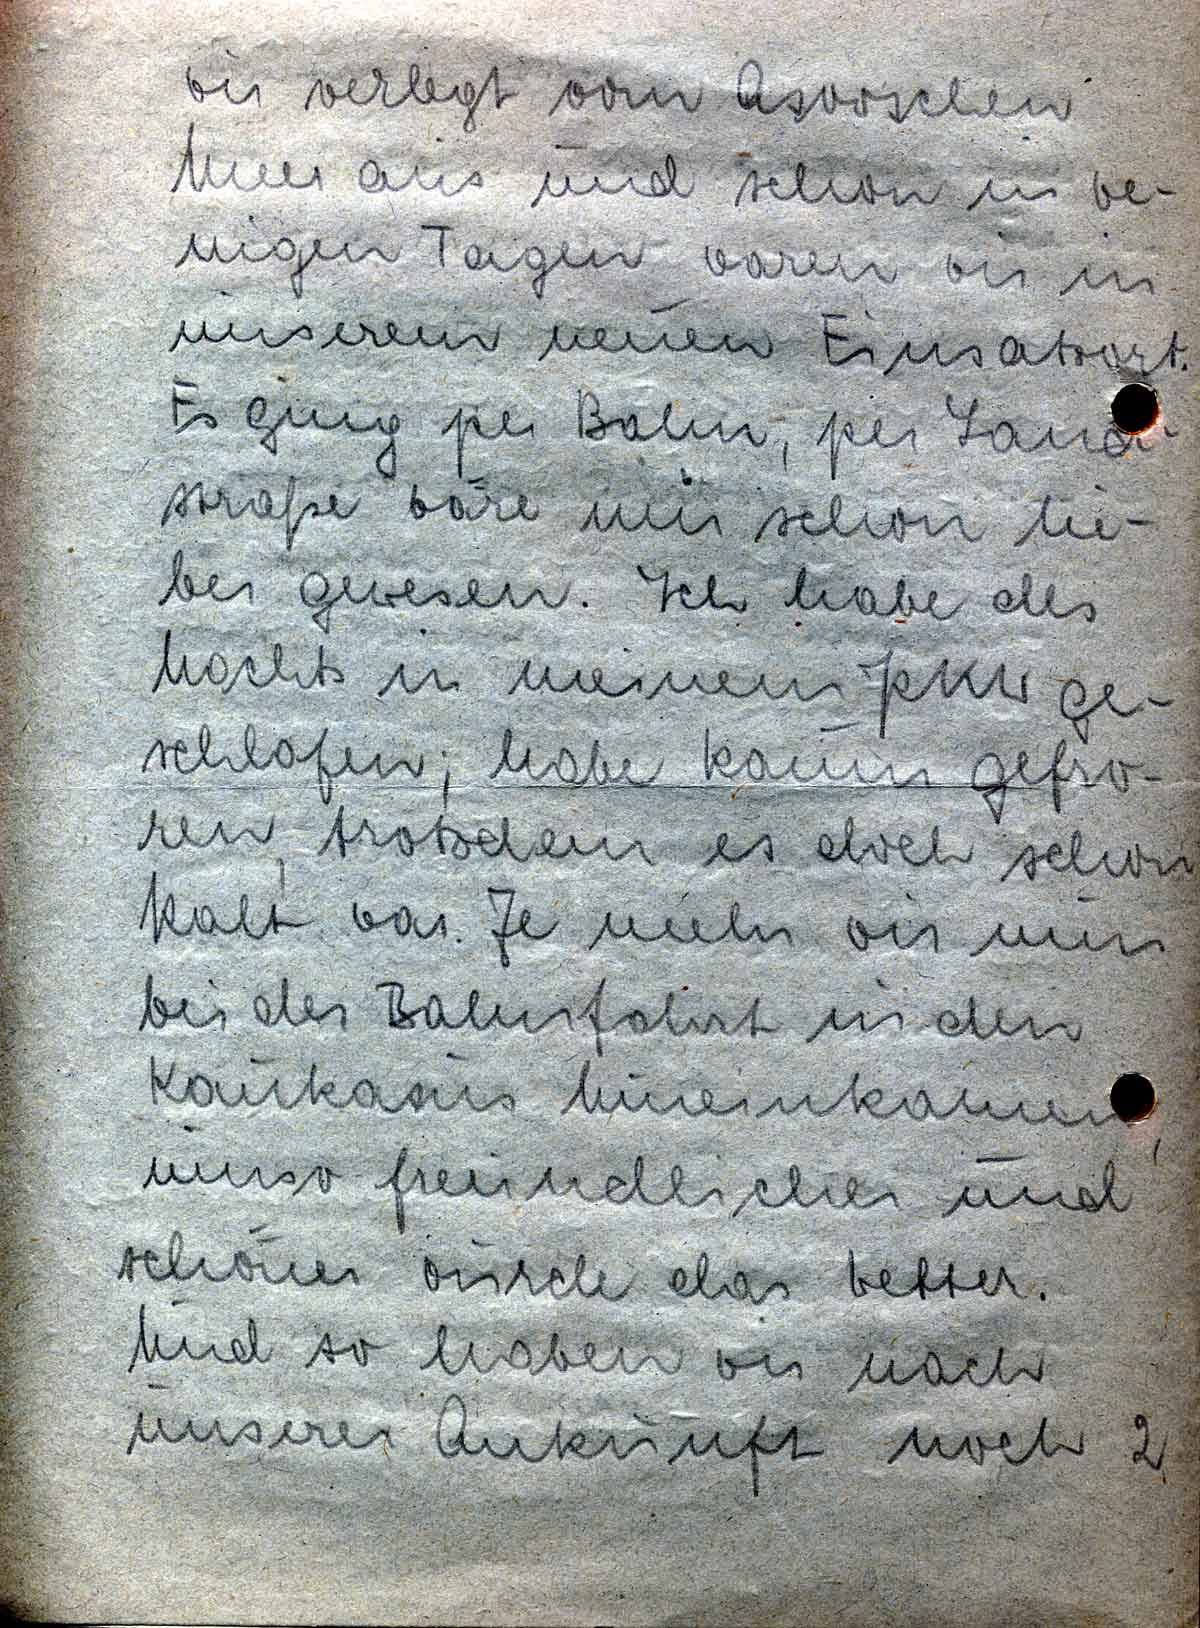 wir verlegt vom Asowschen
Meer aus und schon in we-
nigen Tagen waren wir in
unserem neuen Einsatzort.
Es ging per Bahn, per Land-
straße wäre mir schon lie-
ber gewesen. Ich habe des
Nachts in meinem PKW ge-
schlafen, habe kaum gefro-
ren, trotzdem es doch schon
kalt war. Je mehr wir nun
bei der Bahnfahrt in den
Kaukasus hineinkamen,
umso freundlicher und
schöner wurde das Wetter.
Und so haben wir nach
unserer Ankunft noch 2